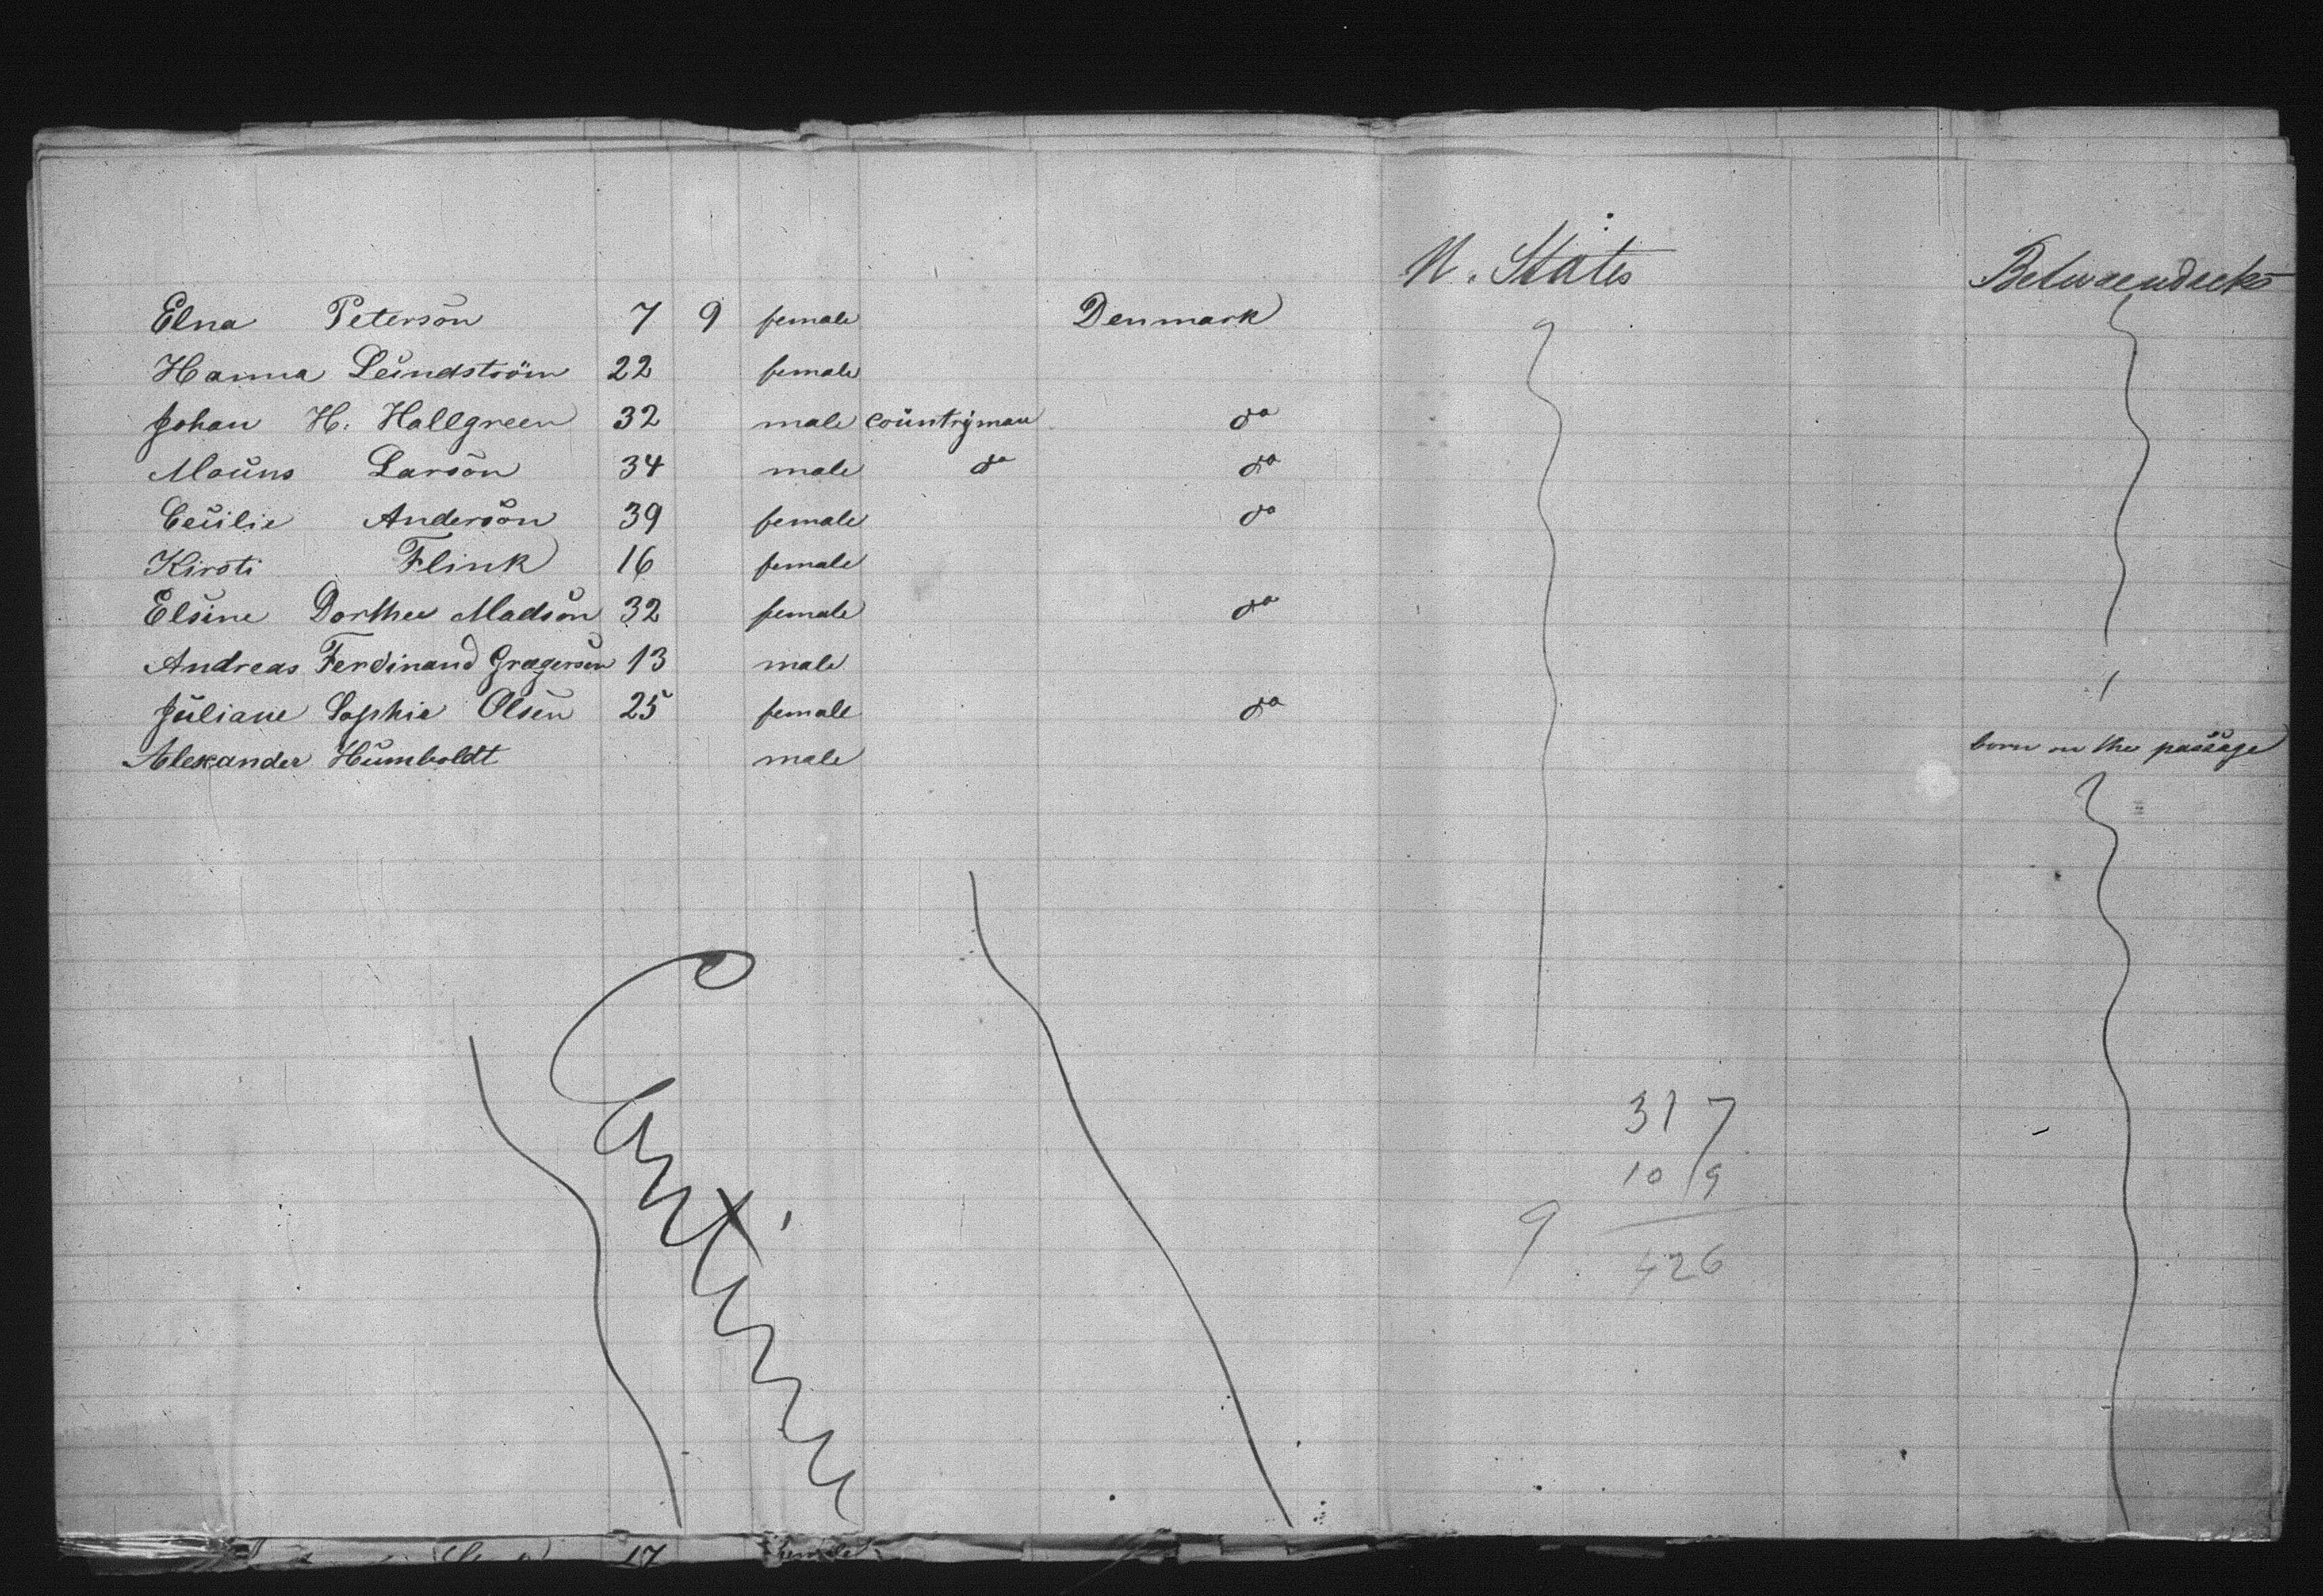 U. States Betwaendecks
Elna Peterson 7 9 female Denmark
Hanna Lundström 22 female
Johan H. Hallgreen 32 male countryman do
Mouns Larson 34 male do do
Cecilie Anderson 39 female do
Kirsti Flink 16 female
Elsine Dorthee Madson 32 female do
Andreas Ferdinand Grægersen 13 male
Juliane Sophie Olsen 25 female do
Alexander Humboldt male born on the passage
317
109
9 426
17 female